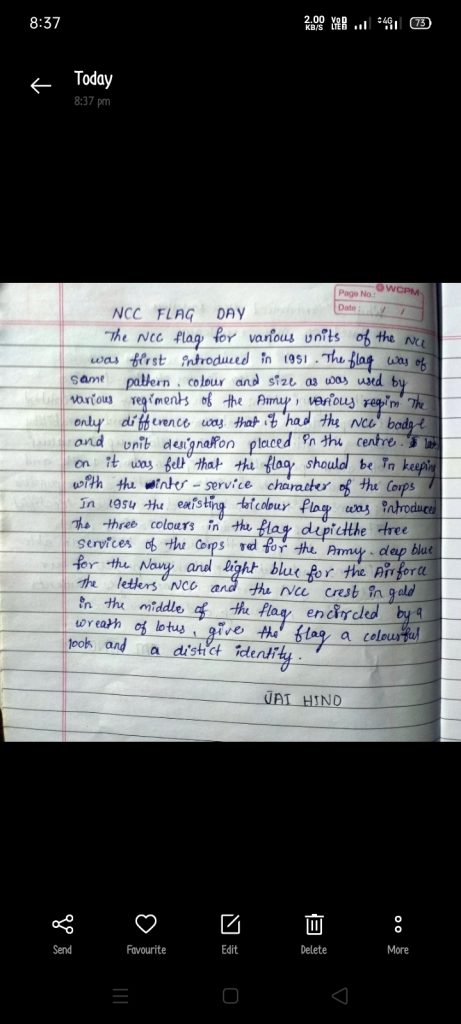 8:37
2.00 KB/S
Vo LTE
4G
73
Today
8:37 pm
Page No.: WCPM
Date: / /
NCC FLAG DAY
The NCC flag for various units of the NCC
was first introduced in 1951. The flag was of
same pattern, colour and size as was used by
various regiments of the Army, various regim The
only difference was that it had the NCC badge
and unit designation placed in the centre.
on it was felt that the flag should be in keeping
with the inter-service character of the Corps
In 1954 the existing tricolour flag was introduced
The three colours in the flag depictthe tree
services of the Corps red for the Army. deep blue
for the Navy and light blue for the Airforce
The letters NCC and the NCC crest in gold
in the middle of the flag encircled by a
wreath of lotus, give the flag a colourful
look and a distict identity.
JAI HIND
Send Favourite Edit Delete More